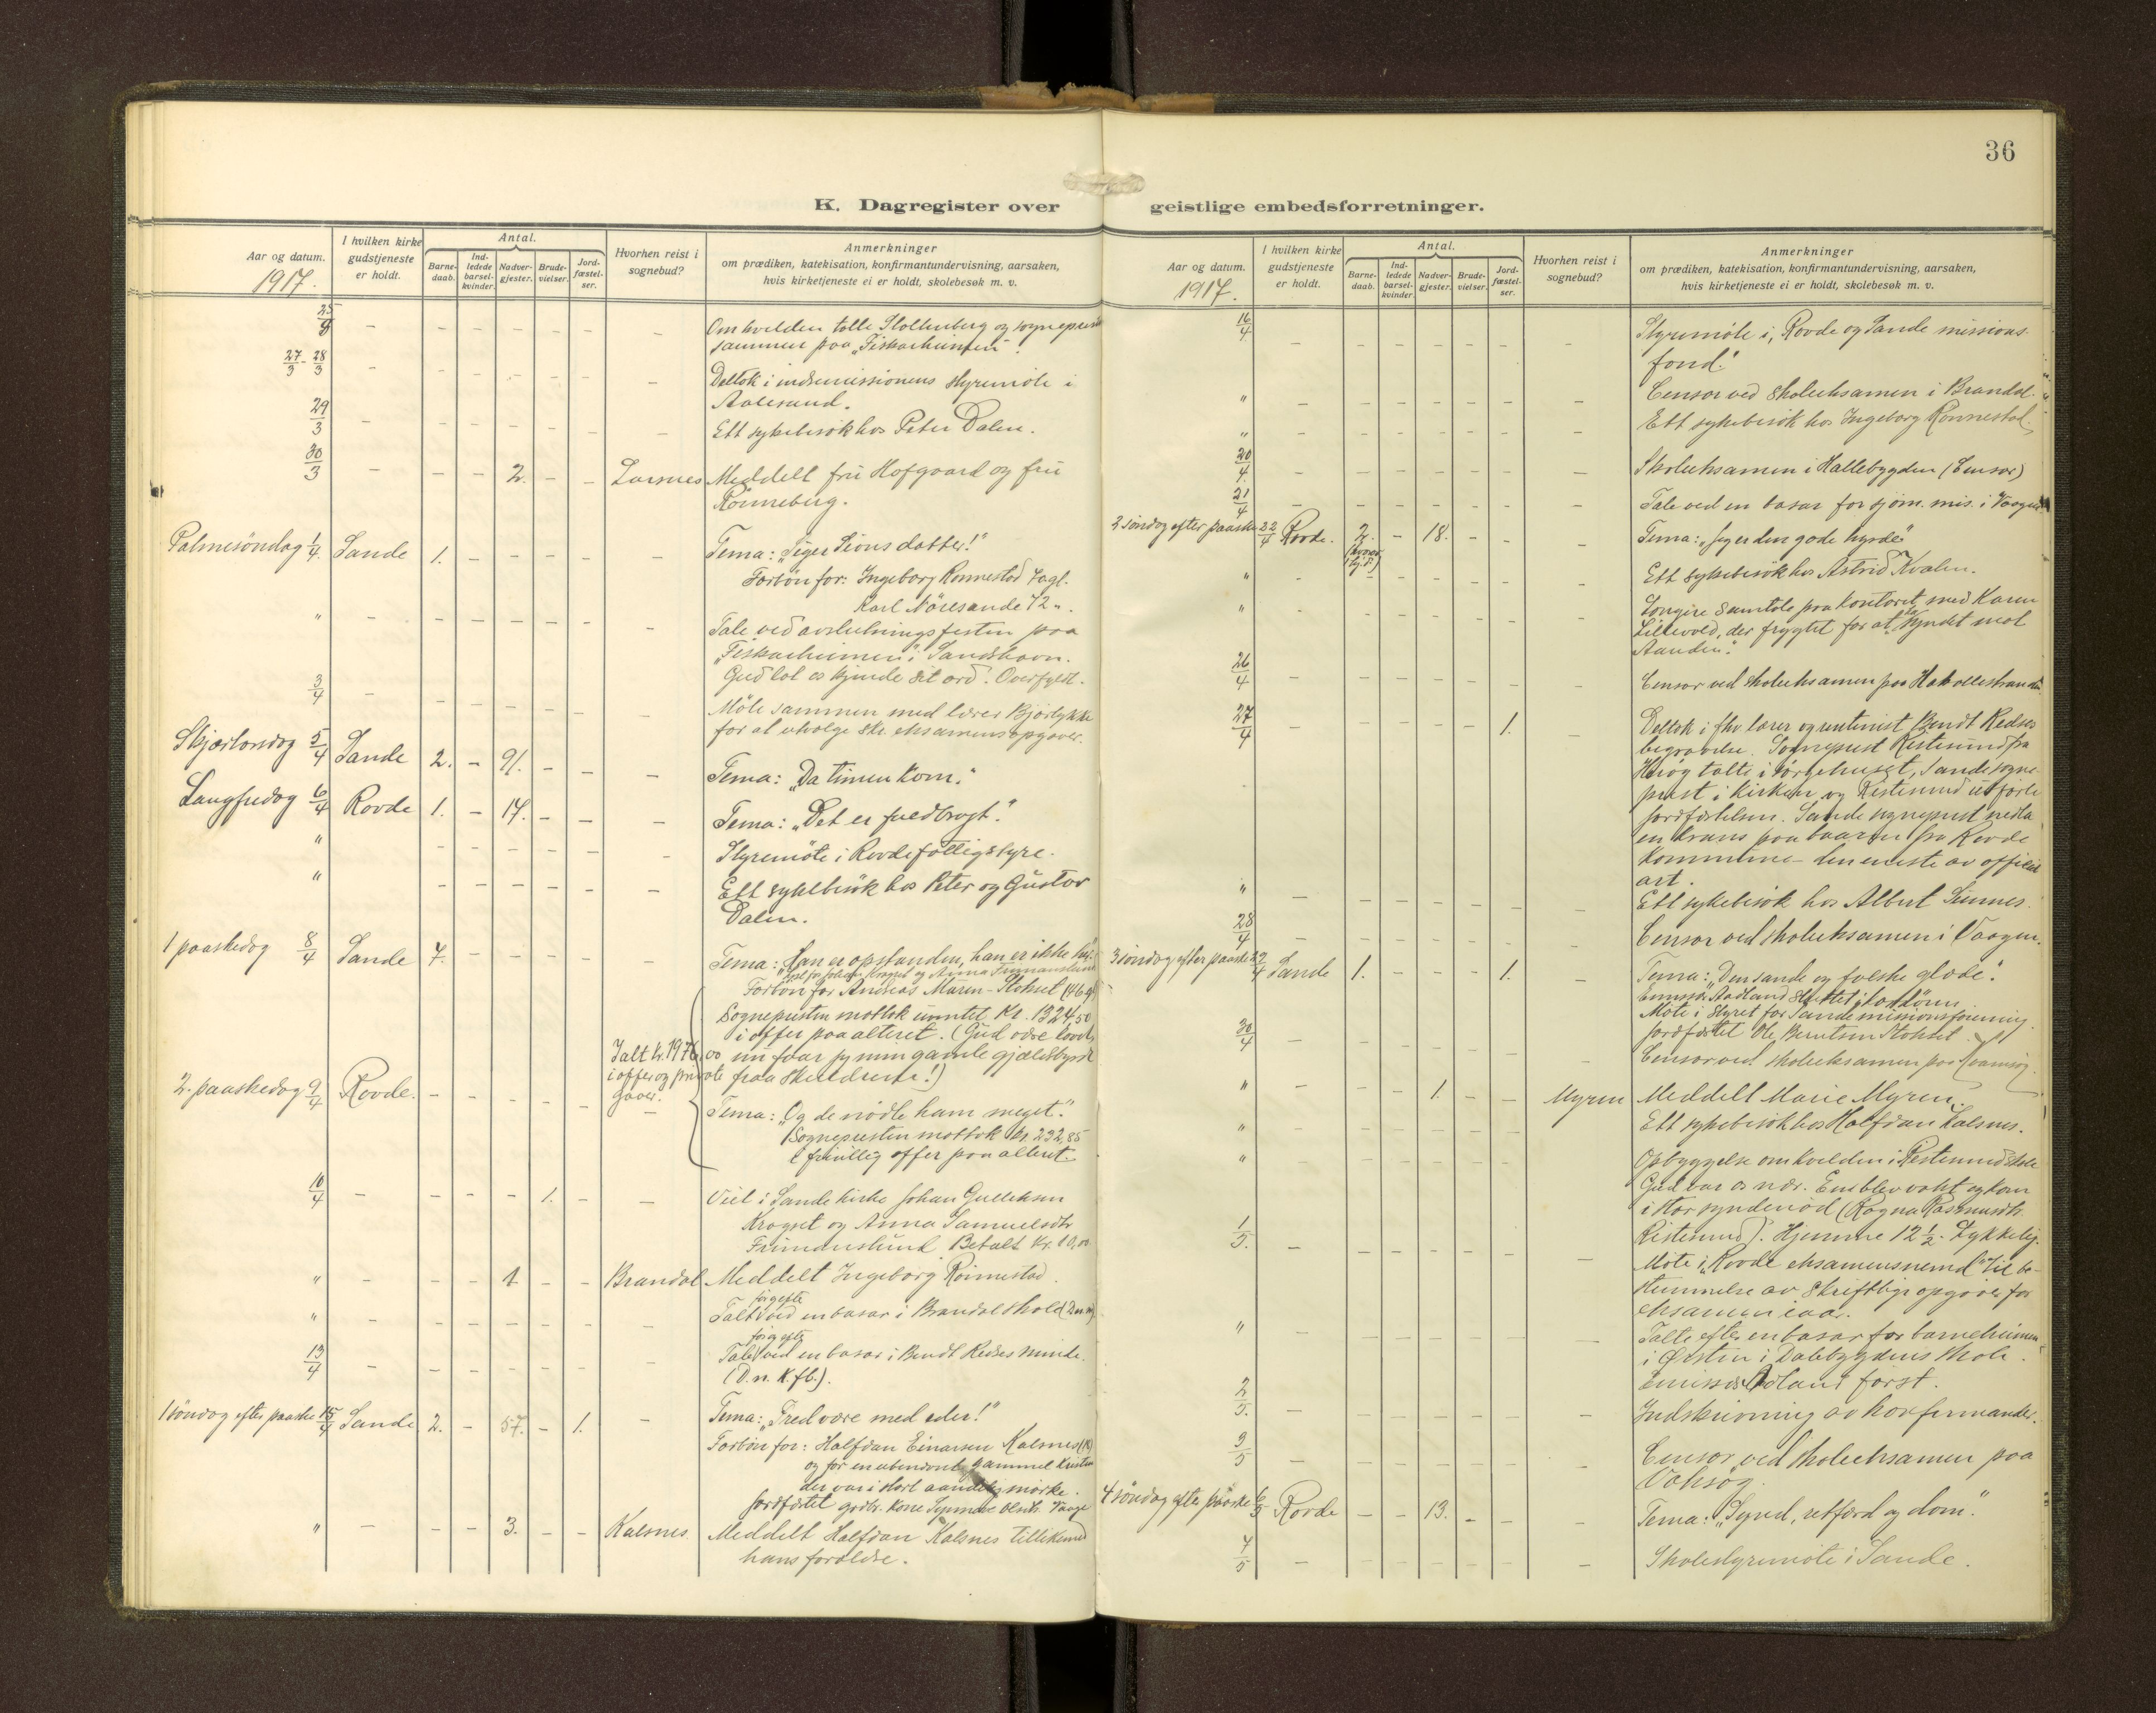 36
K. Dagregister over geistlige embedsforretninger.
Aar og datum.
1917.
I hvilken kirke gudstjeneste er holdt.
Antal.
Barne-daab.
Ind-ledede barsel-kvinder.
Nadver-gjester.
Brude-vielser.
Jord-fæstel-ser.
Hvorhen reist i sognebud?
Anmerkninger
om prædiken, katekisation, konfirmantundervisning, aarsaken,
hvis kirketjeneste ei er holdt, skolebesøk m. v.
Om kvelden talte Stoltenberg og sogneprest
sammen paa „Fiskarheimen".
27/3 - 28/3 Deltok i indremissionens styremöte i
Aalesund.
29/3 Ett sykebesök hos Peter Dalen.
30/3 2. Larsnes Meddelt fru Hofgaard og fru
Rönneberg.
Palmesöndag 1/4. Sande 1. Tema: „Siger Sions datter!"
Forbön for: Ingeborg Rönnestad
Karl Nöresande 72 ".
" Tale ved avslutningsfesten paa
„Fiskarheimen" i Sandshavn.
Gud lot os kjende sit ord. Overfyldt.
3/4 Möte sammen med lærer Bjørlykke
for at utvælge skr. eksamensopgaver.
Skjærtorsdag 5/4 Sande 2. - 91. Tema: „Da timen kom."
Langfredag 6/4 Rovde 1. - 17. Tema: „Det er fuldbragt."
" Styremöte i Rovde fattigstyre.
" Ett sykebesök hos Peter og Gustav
Dalen.
1 paaskedag 8/4 Sande 7. Tema: „Han er opstanden, han er ikke her."
Forbön for Andreas Maren-Stokset
Sognepresten mottok uventet kr. 1324,50
i offer paa alteret. (Gud være lovet,
nu faar jeg min gamle gjældsbyrde
fraa
Ialt kr. 1976,00
i offer og private
gaver.
2. paaskedag 9/4 Rovde. Tema: „Og de nödte ham meget."
Sognepresten mottok kr. 232,85
i frivillig offer paa alteret.
10/4 1. Viet i Sande kirke Johan Gulleksen
Krogset og Anna Samuelsdtr.
Betalt kr. 10,00
" 1 Brandal Meddelt Ingeborg Rönnestad.
" för og efter
Talt ved en basar i Brandal skole
13/4 för og efter
Talt ved en basar i Bendt Redses minde.
(D.n. K.fb.).
1 söndag efter paaske 15/4 Sande 2. - 57. - 1. Tema: „Fred være med eder!"
Forbön for: Halfdan Einarsen Kalsnes
og for en ubenævnt gammel kristen
der var i stort aandelig mörke.
" 3. Kalsnes. Meddelt Halfdan Kalsnes tillikemed
hans forældre.
Aar og datum.
1917.
I hvilken kirke gudstjeneste er holdt.
Antal.
Barne-daab.
Ind-ledede barsel-kvinder.
Nadver-gjester.
Brude-vielser.
Jord-fæstel-ser.
Hvorhen reist i sognebud?
Anmerkninger
om prædiken, katekisation, konfirmantundervisning, aarsaken,
hvis kirketjeneste ei er holdt, skolebesøk m. v.
16/4 Styremöte i „Rovde og Sande missions-
fond."
" Censor ved skoleeksamen i Brandal.
" Ett sykebesök hos Ingeborg Rönnestad.
20/4 Skoleeksamen i Hallebygden (Censor)
21/4 Tale ved en basar for sjöm. mis. i Vaagen
2 söndag efter paaske 22/4 Rovde. 2. - 18. Tema: „Jeg er den gode hyrde"
" Ett sykebesök hos Astrid Kvalen.
" Længere samtale paa kontoret med Karen
Lillevold, der frygtet for at ha syndet mot
Aanden.
26/4 Censor ved skoleeksamen paa Hakallestranden
27/4 1. Deltok i fhv. lærer og Bendt Redses
begravelse. Sogneprest Ristesund fra
talte i sørgehuset, Sande sogne-
prest i kirken og Ristesund utförte
jordfæstelsen. Sande sogneprest nedla
en krans paa baaren fra Rovde
kommune - den eneste av officiel
art.
" Ett sykebesök hos Albert
28/4 Censor ved skoleeksamen i Vaagen.
3 söndag efter paaske 29/4 Sande 1. 1. Tema: „Den sande og falske glæde."
Emissær Aadland sluttet i kordören.
Möte i styret for Sande missionsforening.
Jordfæstet Ole Berntsen Stokset.
30/4 Censor ved skoleeksamen paa
" 1. Myren Meddelt Marie Myren.
" Ett sykebesök hos Halfdan Kalsnes.
" Opbyggelse om kvelden i Ristesund skole
Gud var os nær. En blev vakt og kom
i stor syndenöd (Ragna Rasmusdtr.
Ristesund). Hjemme 12 1/2. Lykkelig.
1/5. Möte i „Rovde eksamensnemd" til be-
stemmelse av skriftlige opgaver for
eksamen iaar.
" Talte efter en basar for barneheimen
i Örsten i Dalebygdens skole.
Emissær Aadland først.
2/5. Indskrivning av konfirmander.
3/5 Censor ved skoleeksamen paa
Voksøg.
4 söndag efter paaske 6/5 Rovde - - 13. Tema: „Synd, retfærd og dom."
7/5 Skolestyremöte i Sande.